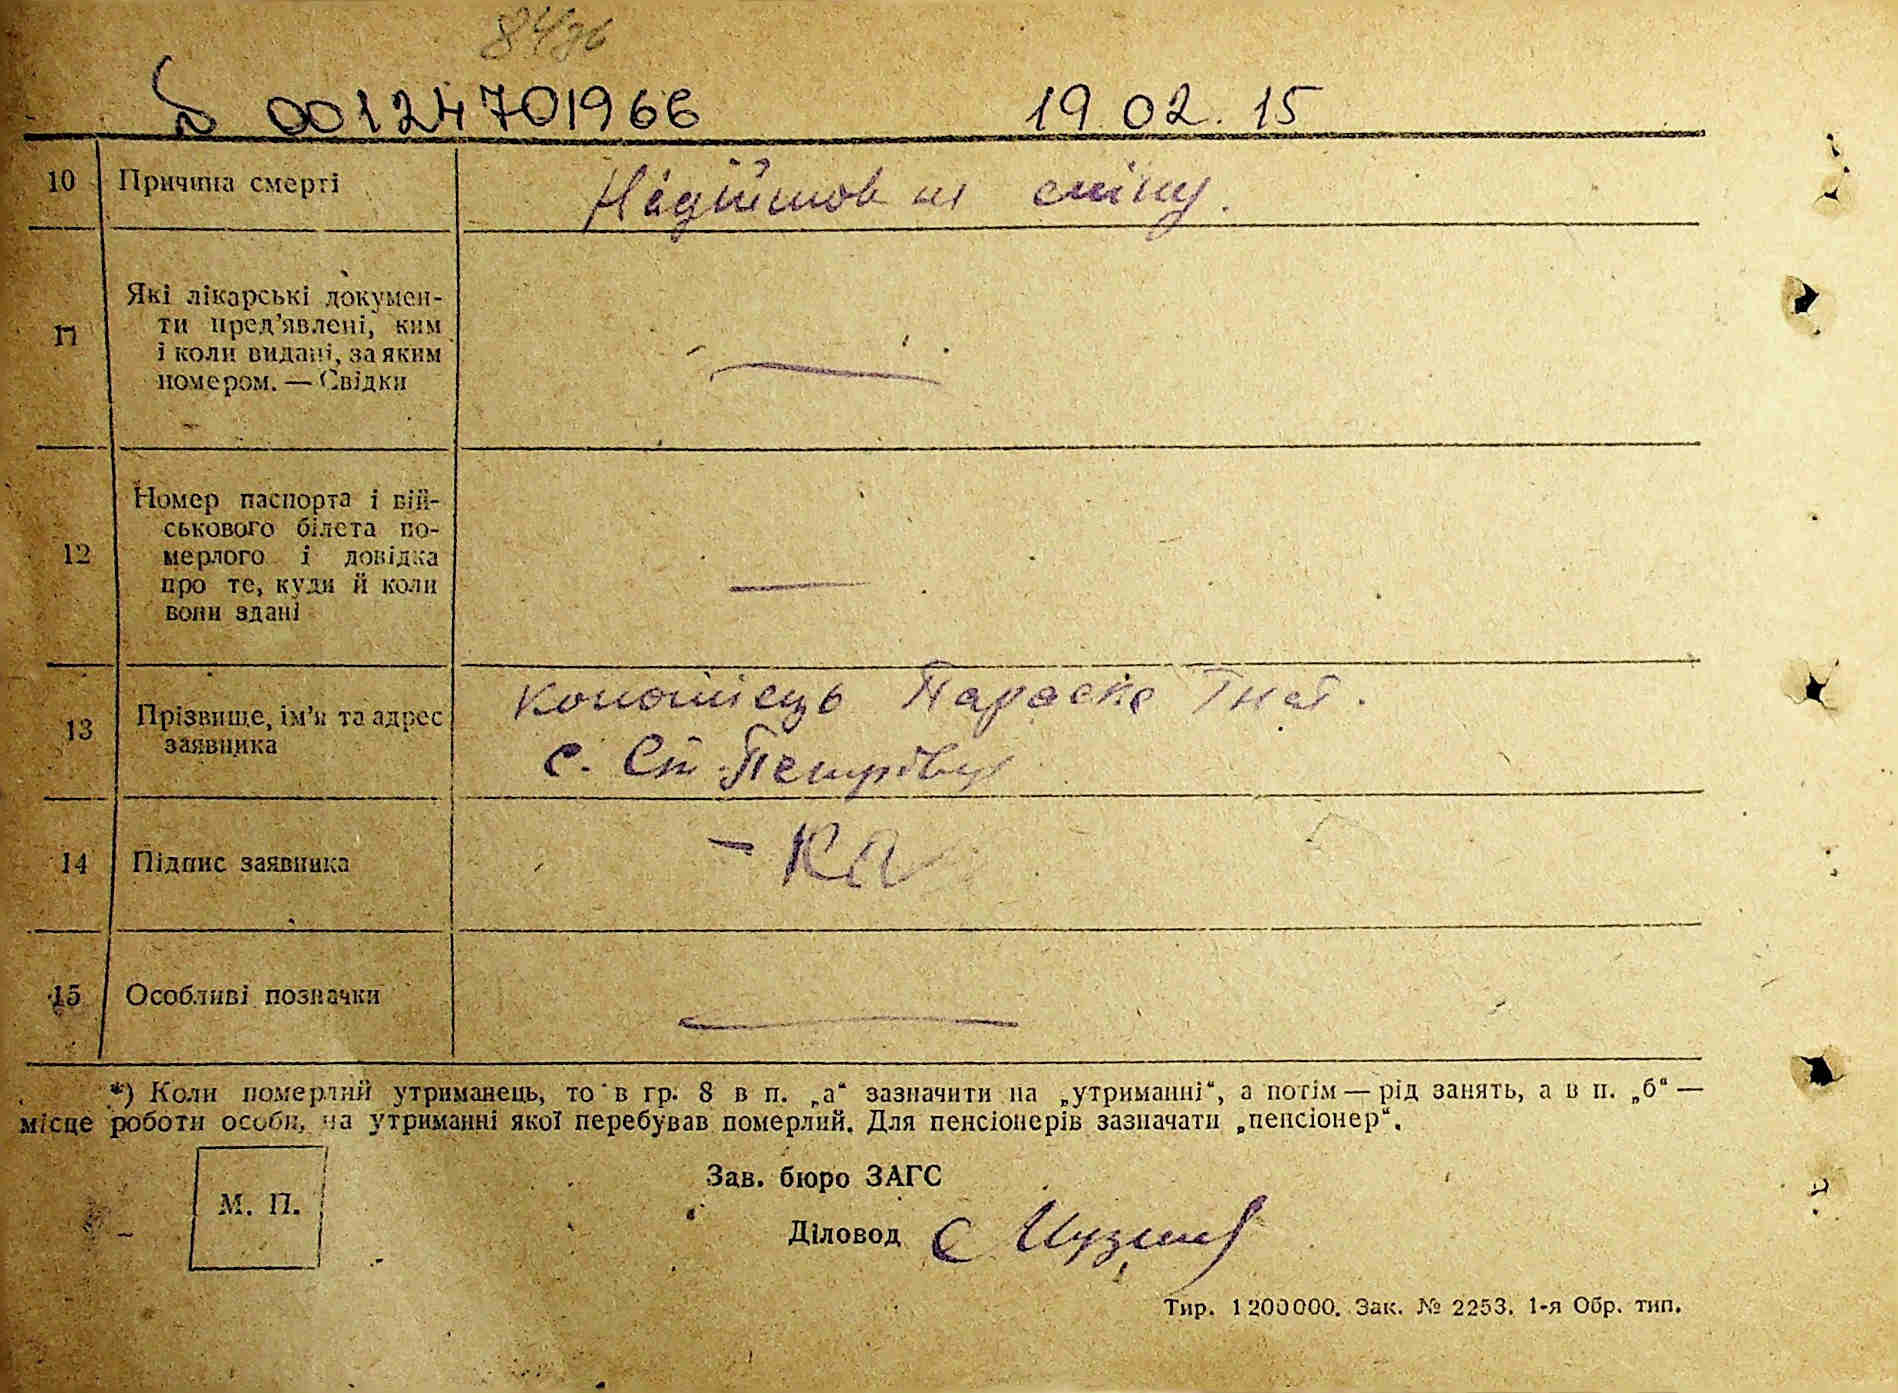 00124701966 19.02.15
10 Причина смерті
11 Які лікарські докумен-
ти пред’явлені, ким
і коли видані, за яким
номером. — Свідки
12 Номер паспорта і вій-
ськового білета по-
мерлого і довідка
про те, куди й коли
вони здані
13 Прізвище, ім’я та адрес
заявника
Параска Гнат.
с. Ст. Петрівці
14 Підпис заявника
15 Особливі позначки
*) Коли померлий утриманець, то в гр. 8 в п. „а“ зазначити на „утриманні“, а потім — рід занять, а в п. „б“ —
місце роботи особи, на утриманні якої перебував померлий. Для пенсіонерів зазначати „пенсіонер“.
М. П.
Зав. бюро ЗАГС
Діловод
Тир. 1200000. Зак. № 2253. 1-я Обр. тип.